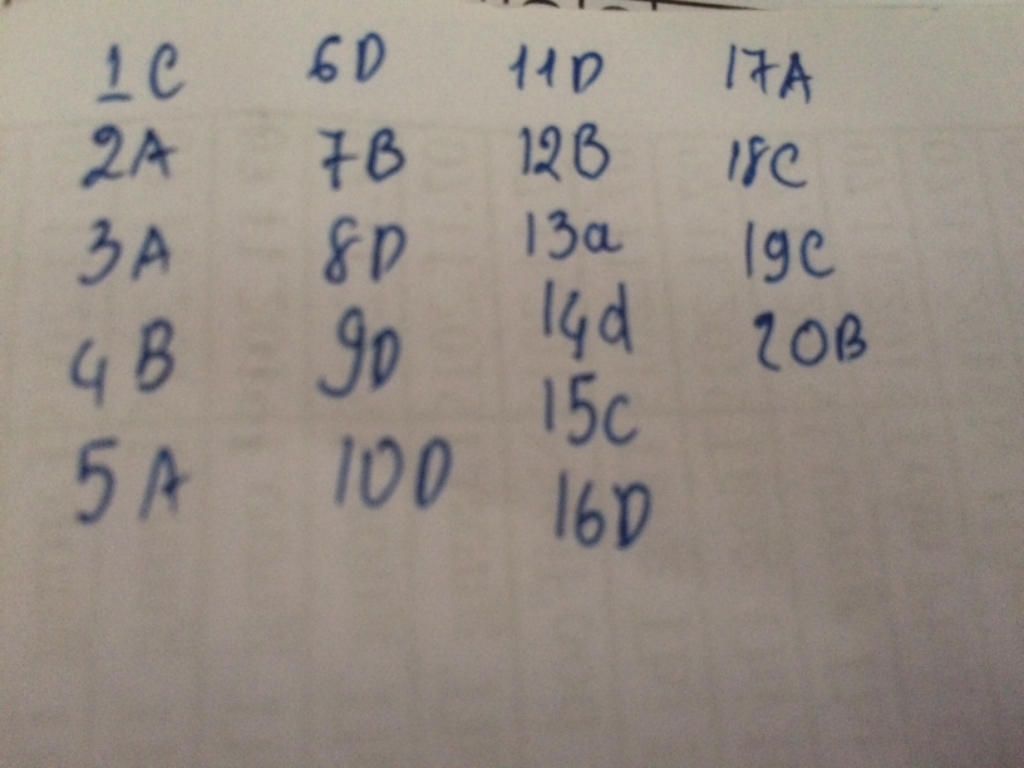 1 C
2A
3A
4 B
5 A
6D
7B
8D
9D
10D
11D
12B
13a
14d
15c
16D
17A
18C
19C
20B